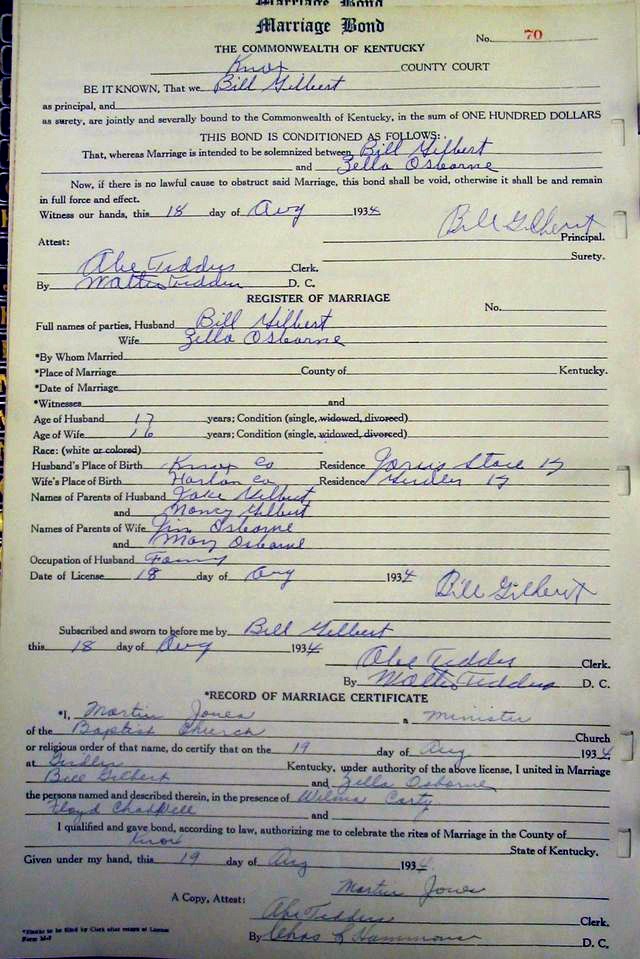 Marriage Bond
Marriage Bond
No. 70
THE COMMONWEALTH OF KENTUCKY
Knox COUNTY COURT
BE IT KNOWN, That we Bill Gilbert
as principal, and
as surety, are jointly and severally bound to the Commonwealth of Kentucky, in the sum of ONE HUNDRED DOLLARS
THIS BOND IS CONDITIONED AS FOLLOWS:
That, whereas Marriage is intended to be solemnized between Bill Gilbert
and Zella Osborne
Now, if there is no lawful cause to obstruct said Marriage, this bond shall be void, otherwise it shall be and remain
in full force and effect.
Witness our hands, this 18 day of Aug 1934
Bill Gilbert
Principal.
Attest:
Surety.
Abe Tedders Clerk.
By Walter Tedders D. C.
REGISTER OF MARRIAGE
No.
Full names of parties, Husband Bill Gilbert
Wife Zella Osborne
*By Whom Married
*Place of Marriage County of Kentucky.
*Date of Marriage
*Witnesses and
Age of Husband 17 years; Condition (single, widowed, divorced)
Age of Wife 16 years; Condition (single, widowed, divorced)
Race: (white or colored)
Husband's Place of Birth Knox Co Residence Store Ky
Wife's Place of Birth Harlan Co Residence Girdler Ky
Names of Parents of Husband Gilbert
and Nancy Gilbert
Names of Parents of Wife Jim Osborne
and Mary Osborne
Occupation of Husband
Date of License 18 day of Aug 1934
Bill Gilbert
Subscribed and sworn to before me by Bill Gilbert
this 18 day of Aug 1934
Abe Tedders Clerk.
By Walter Tedders D. C.
*RECORD OF MARRIAGE CERTIFICATE
*I, Martin Jones a minister
of the Baptist Church Church
or religious order of that name, do certify that on the 19 day of Aug 1934
at Girdler Kentucky, under authority of the above license, I united in Marriage
Bill Gilbert and Zella Osborne
the persons named and described therein, in the presence of Wilma Carty
Floyd Chadwell and
I qualified and gave bond, according to law, authorizing me to celebrate the rites of Marriage in the County of
Knox State of Kentucky.
Given under my hand, this 19 day of Aug 1934
Martin Jones
A Copy, Attest:
Abe Tedders Clerk.
By Chas C Hammons D. C.
Form M-7